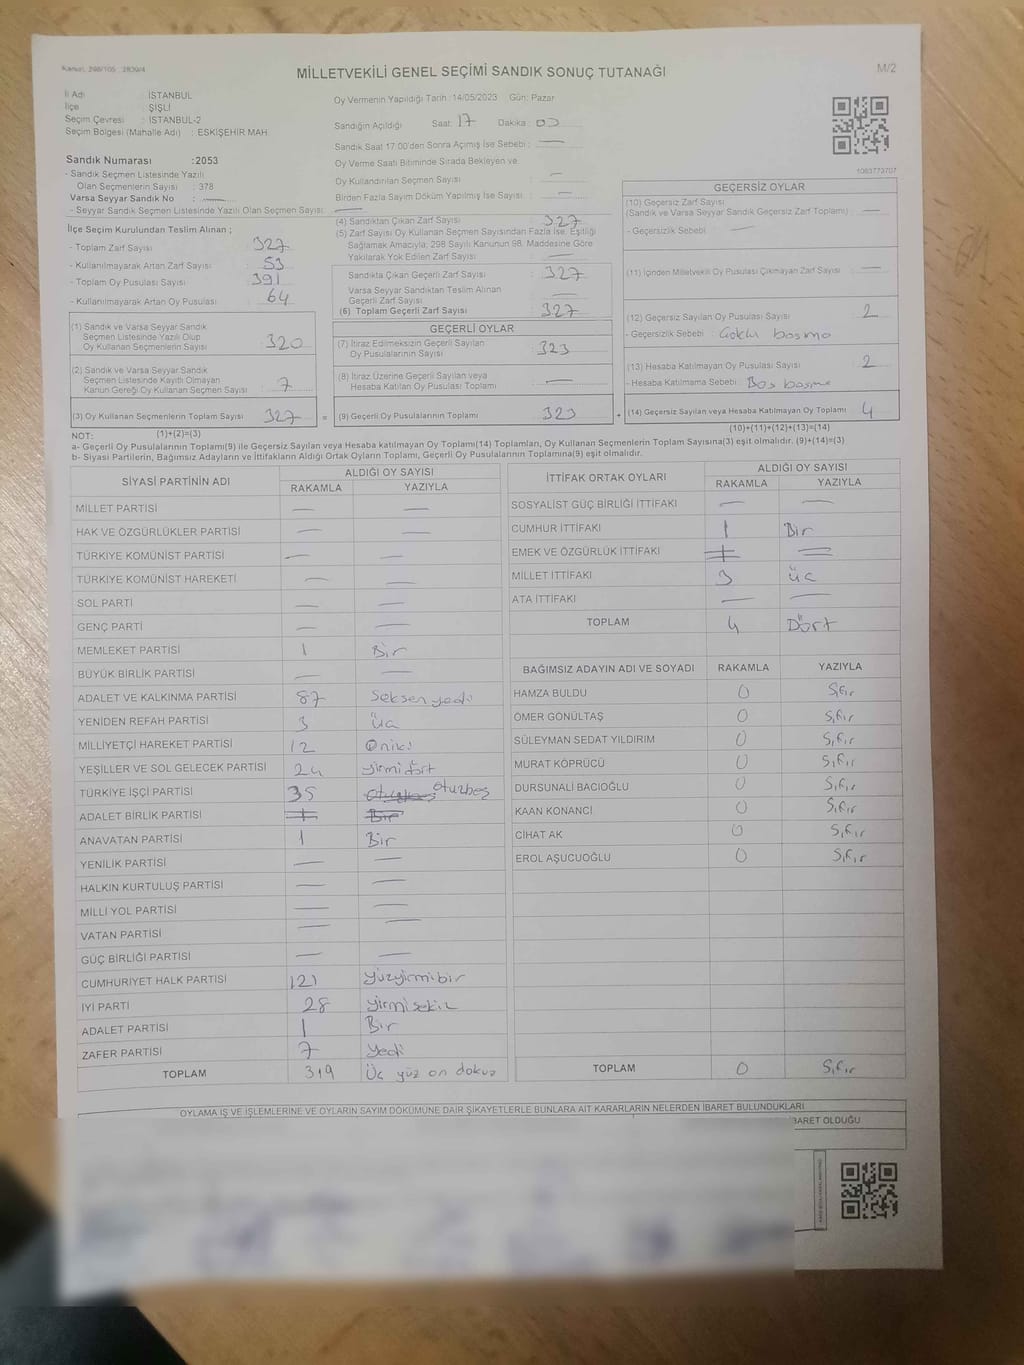 Kanun: 298/105 2839/4
MİLLETVEKİLİ GENEL SEÇİMİ SANDIK SONUÇ TUTANAĞI
M/2
İl Adı : İSTANBUL
İlçe : ŞİŞLİ
Seçim Çevresi : İSTANBUL-2
Seçim Bölgesi (Mahalle Adı) : ESKİŞEHİR MAH.
Oy Vermenin Yapıldığı Tarih :14/05/2023 Gün: Pazar
Sandığın Açıldığı Saat: 17 Dakika: 00
Sandık Saat 17:00'den Sonra Açılmış İse Sebebi : —
Oy Verme Saati Bitiminde Sırada Bekleyen ve
Oy Kullandırılan Seçmen Sayısı —
Birden Fazla Sayım Döküm Yapılmış İse Sayısı : —
1083773707
Sandık Numarası :2053
- Sandık Seçmen Listesinde Yazılı
Olan Seçmenlerin Sayısı : 378
Varsa Seyyar Sandık No : —
- Seyyar Sandık Seçmen Listesinde Yazılı Olan Seçmen Sayısı: —
İlçe Seçim Kurulundan Teslim Alınan ;
- Toplam Zarf Sayısı 327
- Kullanılmayarak Artan Zarf Sayısı 53
- Toplam Oy Pusulası Sayısı 391
- Kullanılmayarak Artan Oy Pusulası 64
(1) Sandık ve Varsa Seyyar Sandık
Seçmen Listesinde Yazılı Olup
Oy Kullanan Seçmenlerin Sayısı 320
(2) Sandık ve Varsa Seyyar Sandık
Seçmen Listesinde Kayıtlı Olmayan
Kanun Gereği Oy Kullanan Seçmen Sayısı 7
(3) Oy Kullanan Seçmenlerin Toplam Sayısı 327 =
(4) Sandıktan Çıkan Zarf Sayısı 327
(5) Zarf Sayısı Oy Kullanan Seçmen Sayısından Fazla İse, Eşitliği
Sağlamak Amacıyla, 298 Sayılı Kanunun 98. Maddesine Göre
Yakılarak Yok Edilen Zarf Sayısı —
Sandıkta Çıkan Geçerli Zarf Sayısı 327
Varsa Seyyar Sandıktan Teslim Alınan
Geçerli Zarf Sayısı —
(6) Toplam Geçerli Zarf Sayısı 327
GEÇERLİ OYLAR
(7) İtiraz Edilmeksizin Geçerli Sayılan
Oy Pusulalarının Sayısı 323
(8) İtiraz Üzerine Geçerli Sayılan veya
Hesaba Katılan Oy Pusulası Toplamı —
(9) Geçerli Oy Pusulalarının Toplamı 323 +
GEÇERSİZ OYLAR
(10) Geçersiz Zarf Sayısı
(Sandık ve Varsa Seyyar Sandık Geçersiz Zarf Toplamı) —
- Geçersizlik Sebebi : —
(11) İçinden Milletvekili Oy Pusulası Çıkmayan Zarf Sayısı —
(12) Geçersiz Sayılan Oy Pusulası Sayısı 2
- Geçersizlik Sebebi : Çoklu basma
(13) Hesaba Katılmayan Oy Pusulası Sayısı 2
- Hesaba Katılmama Sebebi : Boş basma
(14) Geçersiz Sayılan veya Hesaba Katılmayan Oy Toplamı 4
NOT: (1)+(2)=(3)
(10)+(11)+(12)+(13)=(14)
a- Geçerli Oy Pusulalarının Toplamı(9) ile Geçersiz Sayılan veya Hesaba katılmayan Oy Toplamı(14) Toplamları, Oy Kullanan Seçmenlerin Toplam Sayısına(3) eşit olmalıdır. (9)+(14)=(3)
b- Siyasi Partilerin, Bağımsız Adayların ve İttifakların Aldığı Ortak Oyların Toplamı, Geçerli Oy Pusulalarının Toplamına(9) eşit olmalıdır.
SİYASİ PARTİNİN ADI ALDIĞI OY SAYISI
RAKAMLA YAZIYLA
MİLLET PARTİSİ — —
HAK VE ÖZGÜRLÜKLER PARTİSİ — —
TÜRKİYE KOMÜNİST PARTİSİ — —
TÜRKİYE KOMÜNİST HAREKETİ — —
SOL PARTİ — —
GENÇ PARTİ — —
MEMLEKET PARTİSİ 1 Bir
BÜYÜK BİRLİK PARTİSİ — —
ADALET VE KALKINMA PARTİSİ 87 Seksen yedi
YENİDEN REFAH PARTİSİ 3 Üç
MİLLİYETÇİ HAREKET PARTİSİ 12 Oniki
YEŞİLLER VE SOL GELECEK PARTİSİ 24 yirmi dört
TÜRKİYE İŞÇİ PARTİSİ 35 otuzbeş
ADALET BİRLİK PARTİSİ — Bir
ANAVATAN PARTİSİ 1 Bir
YENİLİK PARTİSİ — —
HALKIN KURTULUŞ PARTİSİ — —
MİLLİ YOL PARTİSİ — —
VATAN PARTİSİ — —
GÜÇ BİRLİĞİ PARTİSİ — —
CUMHURİYET HALK PARTİSİ 121 Yüzyirmibir
İYİ PARTİ 28 yirmisekiz
ADALET PARTİSİ 1 Bir
ZAFER PARTİSİ 7 yedi
TOPLAM 319 Üç yüz on dokuz
İTTİFAK ORTAK OYLARI ALDIĞI OY SAYISI
RAKAMLA YAZIYLA
SOSYALİST GÜÇ BİRLİĞİ İTTİFAKI — —
CUMHUR İTTİFAKI 1 Bir
EMEK VE ÖZGÜRLÜK İTTİFAKI — —
MİLLET İTTİFAKI 3 Üç
ATA İTTİFAKI — —
TOPLAM 4 Dört
BAĞIMSIZ ADAYIN ADI VE SOYADI RAKAMLA YAZIYLA
HAMZA BULDU 0 Sıfır
ÖMER GÖNÜLTAŞ 0 Sıfır
SÜLEYMAN SEDAT YILDIRIM 0 Sıfır
MURAT KÖPRÜCÜ 0 Sıfır
DURSUNALİ BACIOĞLU 0 Sıfır
KAAN KONANCİ 0 Sıfır
CİHAT AK 0 Sıfır
EROL AŞUCUOĞLU 0 Sıfır
TOPLAM 0 Sıfır
OYLAMA İŞ VE İŞLEMLERİNE VE OYLARIN SAYIM DÖKÜMÜNE DAİR ŞİKAYETLERLE BUNLARA AİT KARARLARIN NELERDEN İBARET BULUNDUKLARI
İBARET OLDUĞU